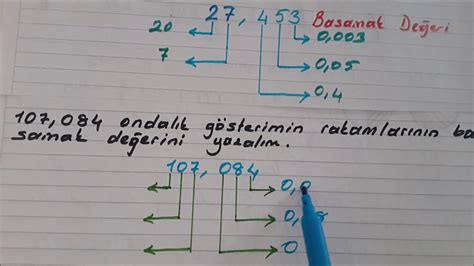 27,453 Basamak Değeri
20
0,003
7
0,05
0,4
107,084 ondalık gösterimin rakamlarının ba
samak değerini yazalım.
107,084
0,0
0,
8
0